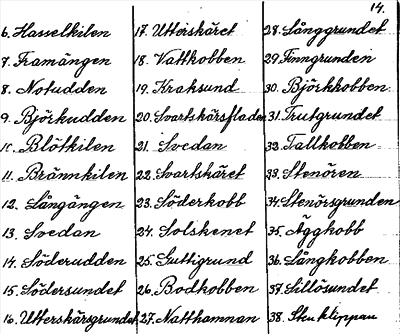 14.
6. Hasselkilen
7. Framängen
8. Notudden
9. Björkudden
10. Blötkilen
11. Brännkilen
12. Långängen
13. Svedan
14. Söderudden
15. Södersundet
16. Utterskärsgrundet
17. Utterskäret
18. Vattkobben
19. Kraksund
20. Svartskärsfladen
21. Svedan
22. Svartskäret
23. Söderkobb
24. Solskenet
25. Guttigrund
26. Bodkobben
27. Natthamnan
28. Långgrundet
29. Finngrunden
30. Björkkobben
31. Trutgrundet
32. Tallkobben
33. Stenören
34. Stenörsgrunden
35. Äggkobb
36. Långkobben
37. Sillösundet
38. Stuklippan